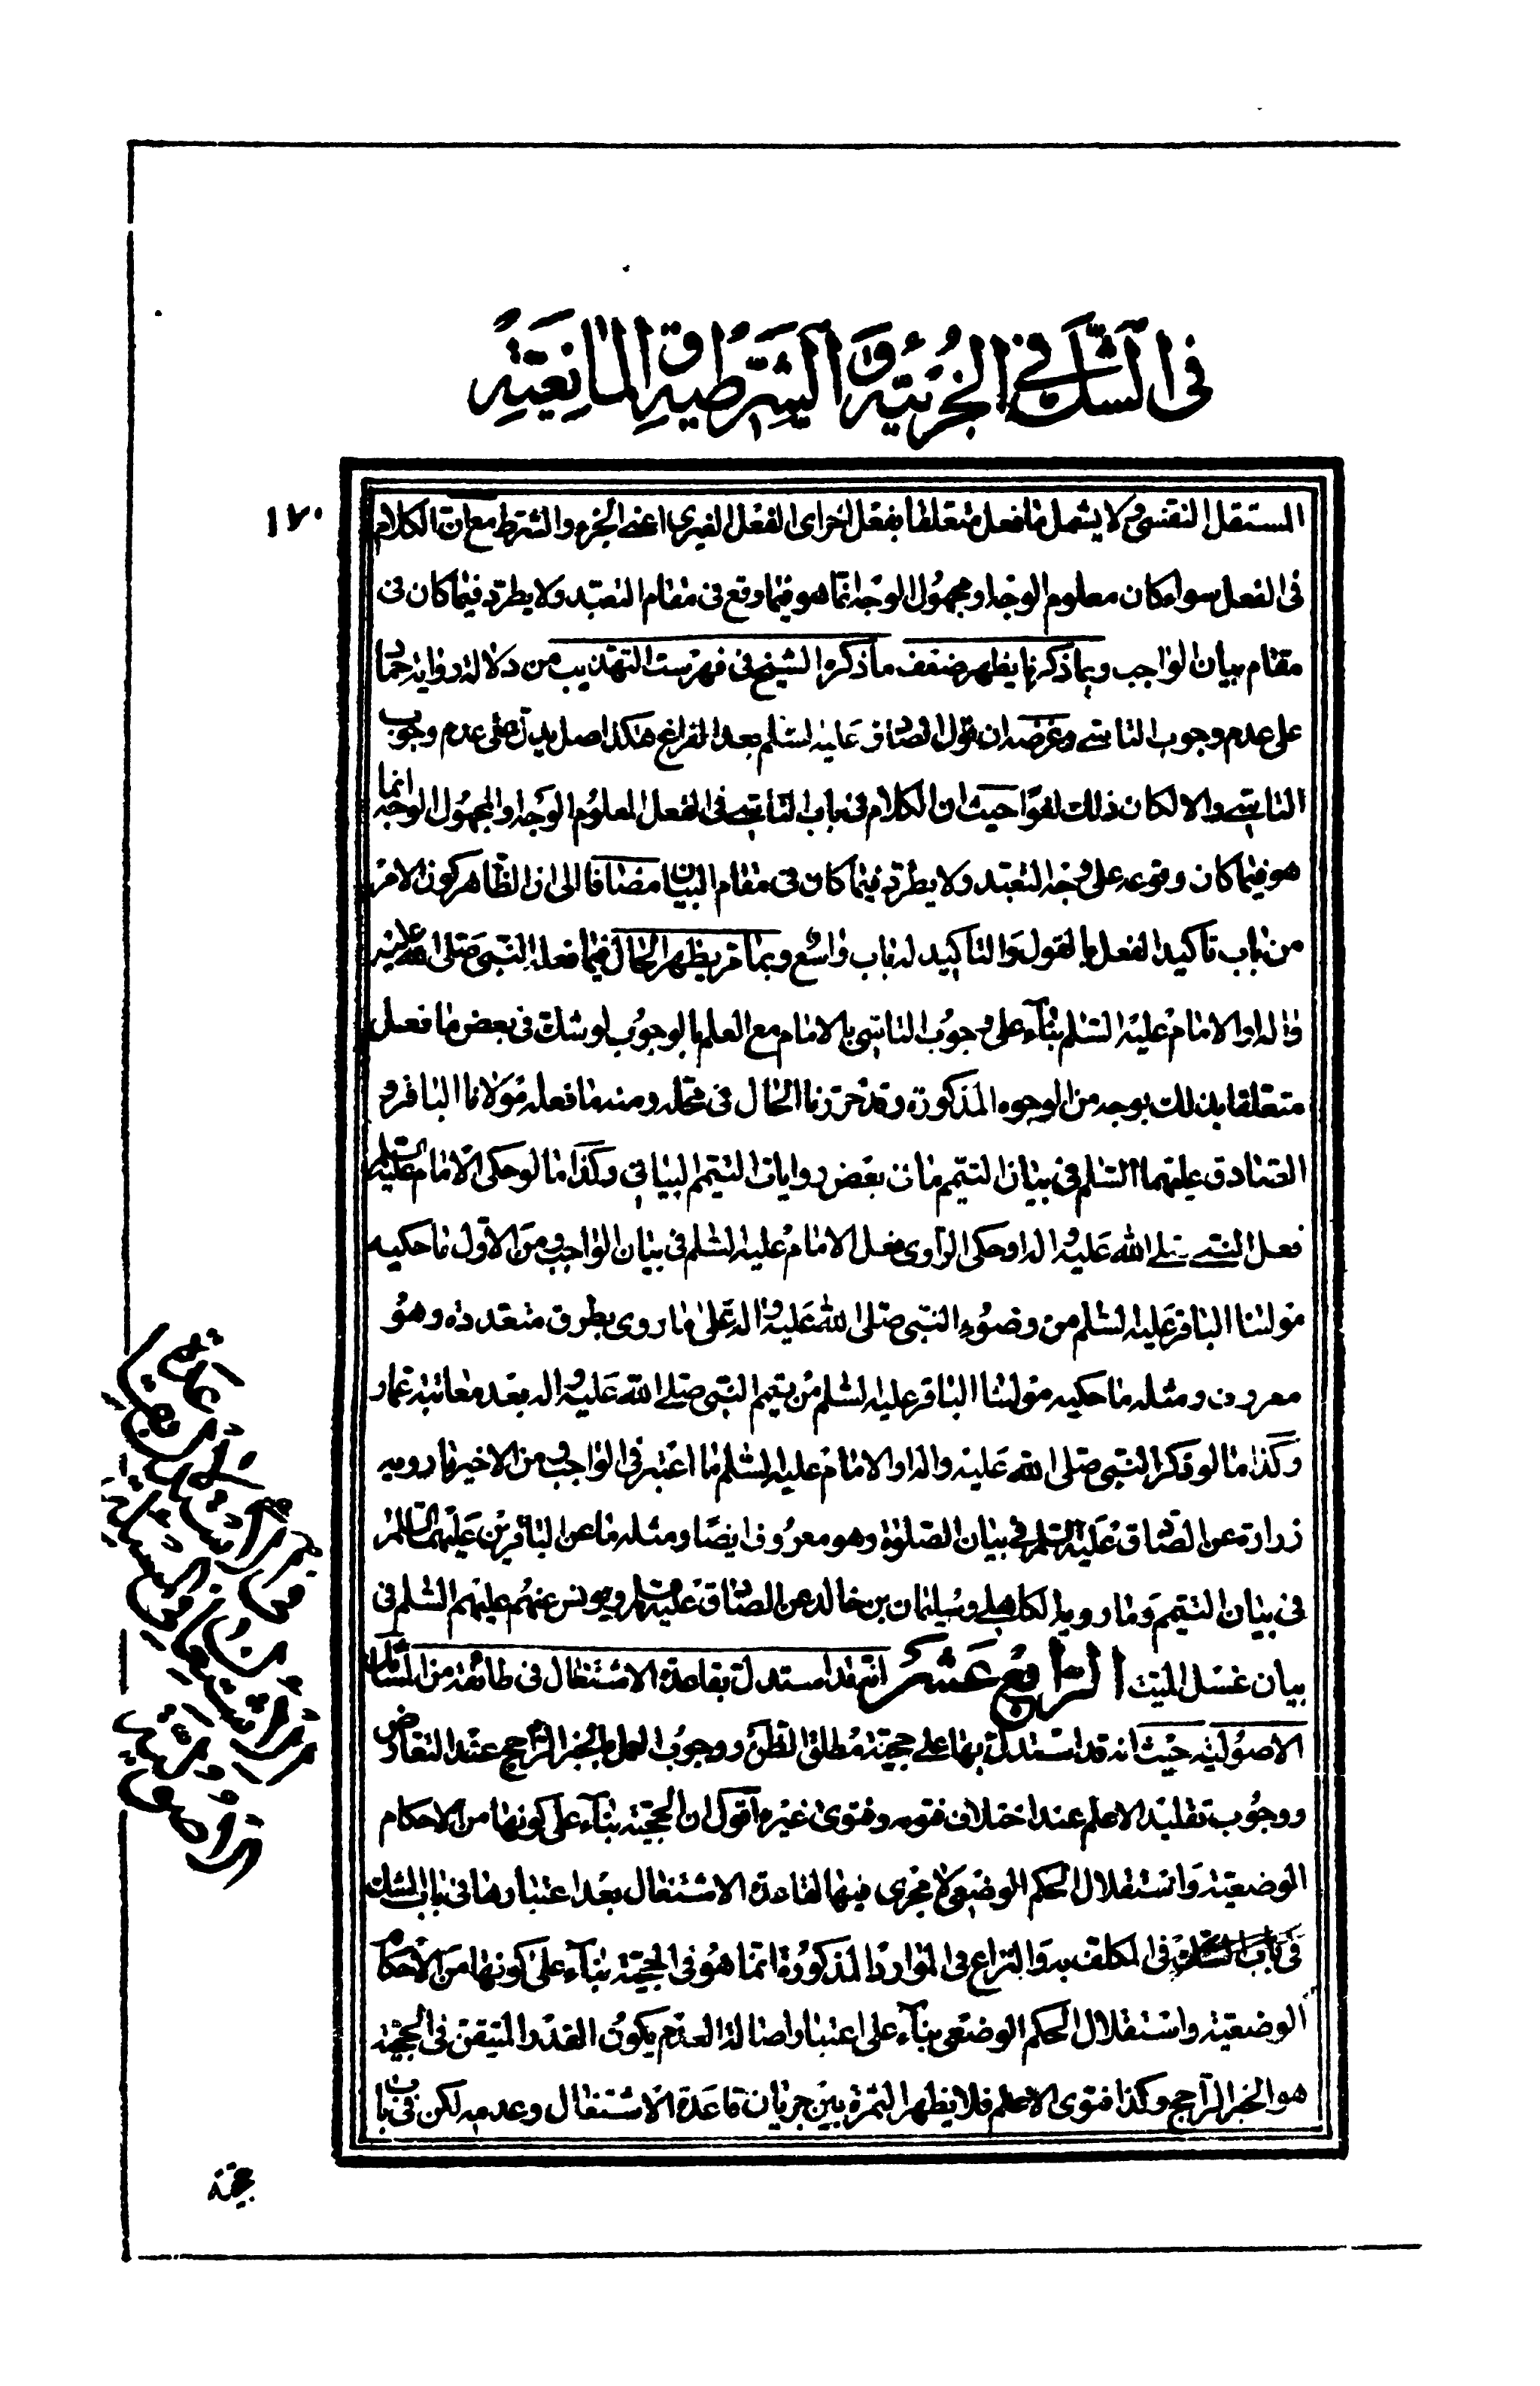 في الشك في الجزئية والشرطية والمانعية
١٧٠
المستقل النفسى لا يشمل ما فعل متعلقا بفعل اخر اى الفعل الغيرى اعنى الجزء والشرط مع ان الكلام
فى الفعل سواء كان معلوم الوجه او مجهول الوجه انما هو فيما وقع فى مقام التعبد ولا يطرد فيما كان فى
مقام بيان الواجب وبما ذكرنا يظهر ضعف ما ذكره الشيخ فى فهرست التهذيب من دلالة رواية حماد
على عدم وجوب التاسى وغرضه ان قول الصادق عليه السلم بعد الفراغ هكذا صل يدل على عدم وجوب
التاسى والا لكان ذلك لغوا حيث ان الكلام فى باب التاسى فى الفعل المعلوم الوجه والمجهول الوجه انما
هو فيما كان وقوعه على وجه التعبد ولا يطرد فيما كان فى مقام البيان مضافا الى ان الظاهر كون الامر
من باب تاكيد الفعل بالقول والتاكيد له باب واسع وبما مر يظهر الحال فيما فعله النبى صلى الله عليه
واله او الامام عليه السلم بناء على وجوب التاسى بالامام مع العلم بالوجوب لو شك فى بعض ما فعل
متعلقا بذلك بوجه من الوجوه المذكورة وقد حررنا الحال فى محله ومنه ما فعله مولانا الباقر و
الصادق عليهما السلم فى بيان التيمم فى بعض روايات التيمم البيانى وكذا ما لو حكى الامام عليه السلم
فعل النبى صلى الله عليه واله او حكى الراوى فعل الامام عليه السلم فى بيان الواجب ومن الاول ما حكيه
مولينا الباقر عليه السلم من وضوء النبى صلى الله عليه واله على ما روى بطرق متعددة وهو
معروف ومثله ما حكيه مولينا الباقر عليه السلم من تيمم النبى صلى الله عليه واله بعد معاتبة عمار
وكذا ما لو ذكر النبى صلى الله عليه واله او الامام عليه السلم ما اعتبر فى الواجب ومن الاخير ما رويه
زرارة عن الصادق عليه السلم فى بيان الصلوة وهو معروف ايضا ومثله ما عن الباقرين عليهما السلم
فى بيان التيمم وما رويه الكاهلى وسليمان بن خالد عن الصادق عليه السلم ويونس عنهم عليهم السلم فى
بيان غسل الميت الرابع عشر انه قد استدل بقاعدة الاشتغال فى طائفة من المسائل
الاصولية حيث انه قد استدل بها على حجية مطلق الظن ووجوب العمل بالخبر الراجح عند التعارض
ووجوب تقليد الاعلم عند اختلاف فتويه وفتوى غيره اقول ان الحجية بناء على كونها من الاحكام
الوضعية واستقلال الحكم الوضعى لا مجرى فيها لقاعدة الاشتغال بعد اعتبارها فى باب الشك
فى المكلف به والنزاع فى الموارد المذكورة انما هو فى الحجية بناء على كونها من الاحكام
الوضعية واستقلال الحكم الوضعى بناء على اعتبار اصالة العدم يكون القدر المتيقن فى الحجية
هو الخبر الراجح وكذا فتوى الاعلم فلا يظهر الثمرة بين جريان قاعدة الاشتغال وعدمه لكن فى باب
حجية